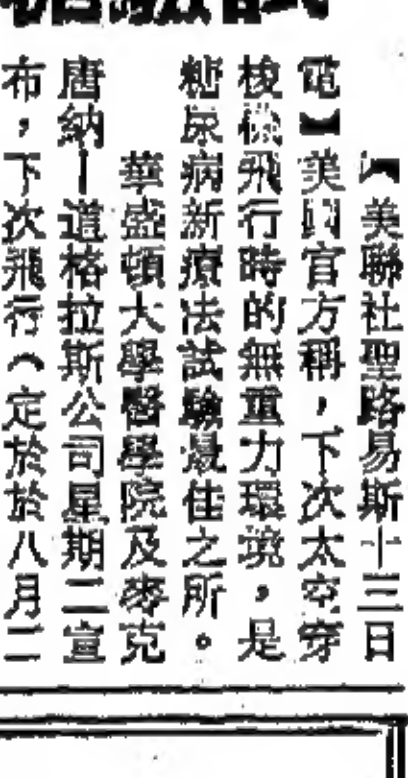 【美聯社聖路易斯十三日
電】美國官方稱，下次太空穿
梭機飛行時的無重力環境，是
糖尿病新療法試驗最佳之所。
華盛頓大學醫學院及麥克
唐納—道格拉斯公司星期二宣
布，下次飛行（定於於八月二